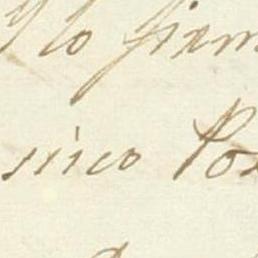 y lo firm
sinco Pos